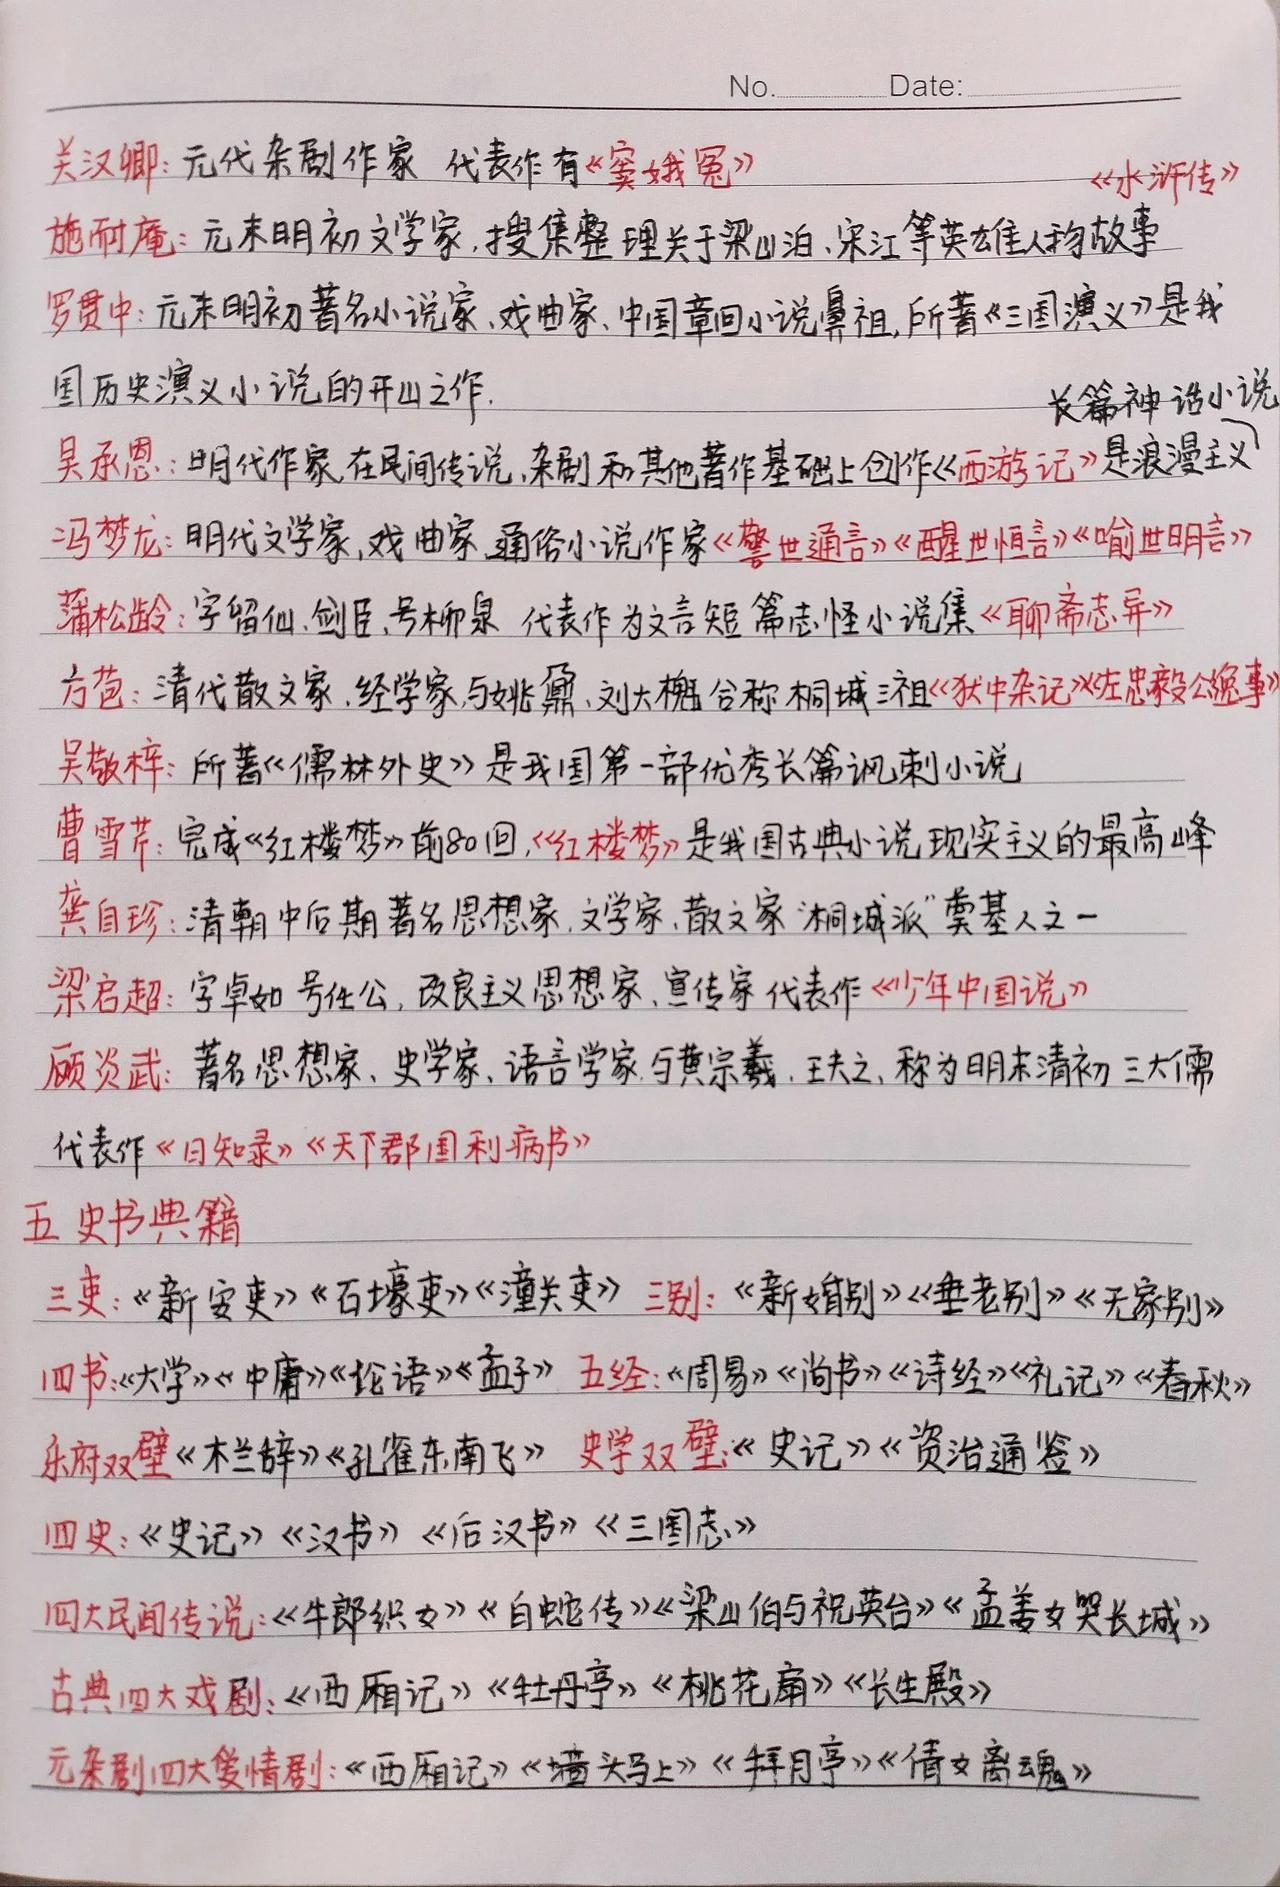 No. Date:
关汉卿：元代杂剧作家 代表作有《窦娥冤》
《水浒传》
施耐庵：元末明初文学家、搜集整理关于梁山泊、宋江等英雄人物故事
罗贯中：元末明初著名小说家、戏曲家、中国章回小说鼻祖，所著《三国演义》是我
国历史演义小说的开山之作.
长篇神话小说
吴承恩：明代作家，在民间传说、杂剧和其他著作基础上创作《西游记》是浪漫主义
冯梦龙：明代文学家、戏曲家、通俗小说作家《警世通言》《醒世恒言》《喻世明言》
蒲松龄：字留仙、剑臣、号柳泉 代表作为文言短篇志怪小说集《聊斋志异》
方苞：清代散文家、经学家，与姚鼐、刘大櫆合称桐城三祖《狱中杂记》《左忠毅公逸事》
吴敬梓：所著《儒林外史》是我国第一部优秀长篇讽刺小说
曹雪芹：完成《红楼梦》前80回，《红楼梦》是我国古典小说现实主义的最高峰
龚自珍：清朝中后期著名思想家、文学家、散文家“桐城派”奠基人之一
梁启超：字卓如 号任公，改良主义思想家、宣传家 代表作《少年中国说》
顾炎武：著名思想家、史学家、语言学家，与黄宗羲、王夫之、称为明末清初三大儒
代表作《日知录》《天下郡国利病书》
五 史书典籍
三吏：《新安吏》《石壕吏》《潼关吏》 三别：《新婚别》《垂老别》《无家别》
四书：《大学》《中庸》《论语》《孟子》 五经：《周易》《尚书》《诗经》《礼记》《春秋》
乐府双壁《木兰辞》《孔雀东南飞》 史学双壁：《史记》《资治通鉴》
四史：《史记》《汉书》《后汉书》《三国志》
四大民间传说：《牛郎织女》《白蛇传》《梁山伯与祝英台》《孟姜女哭长城》
古典四大戏剧：《西厢记》《牡丹亭》《桃花扇》《长生殿》
元杂剧四大爱情剧：《西厢记》《墙头马上》《拜月亭》《倩女离魂》